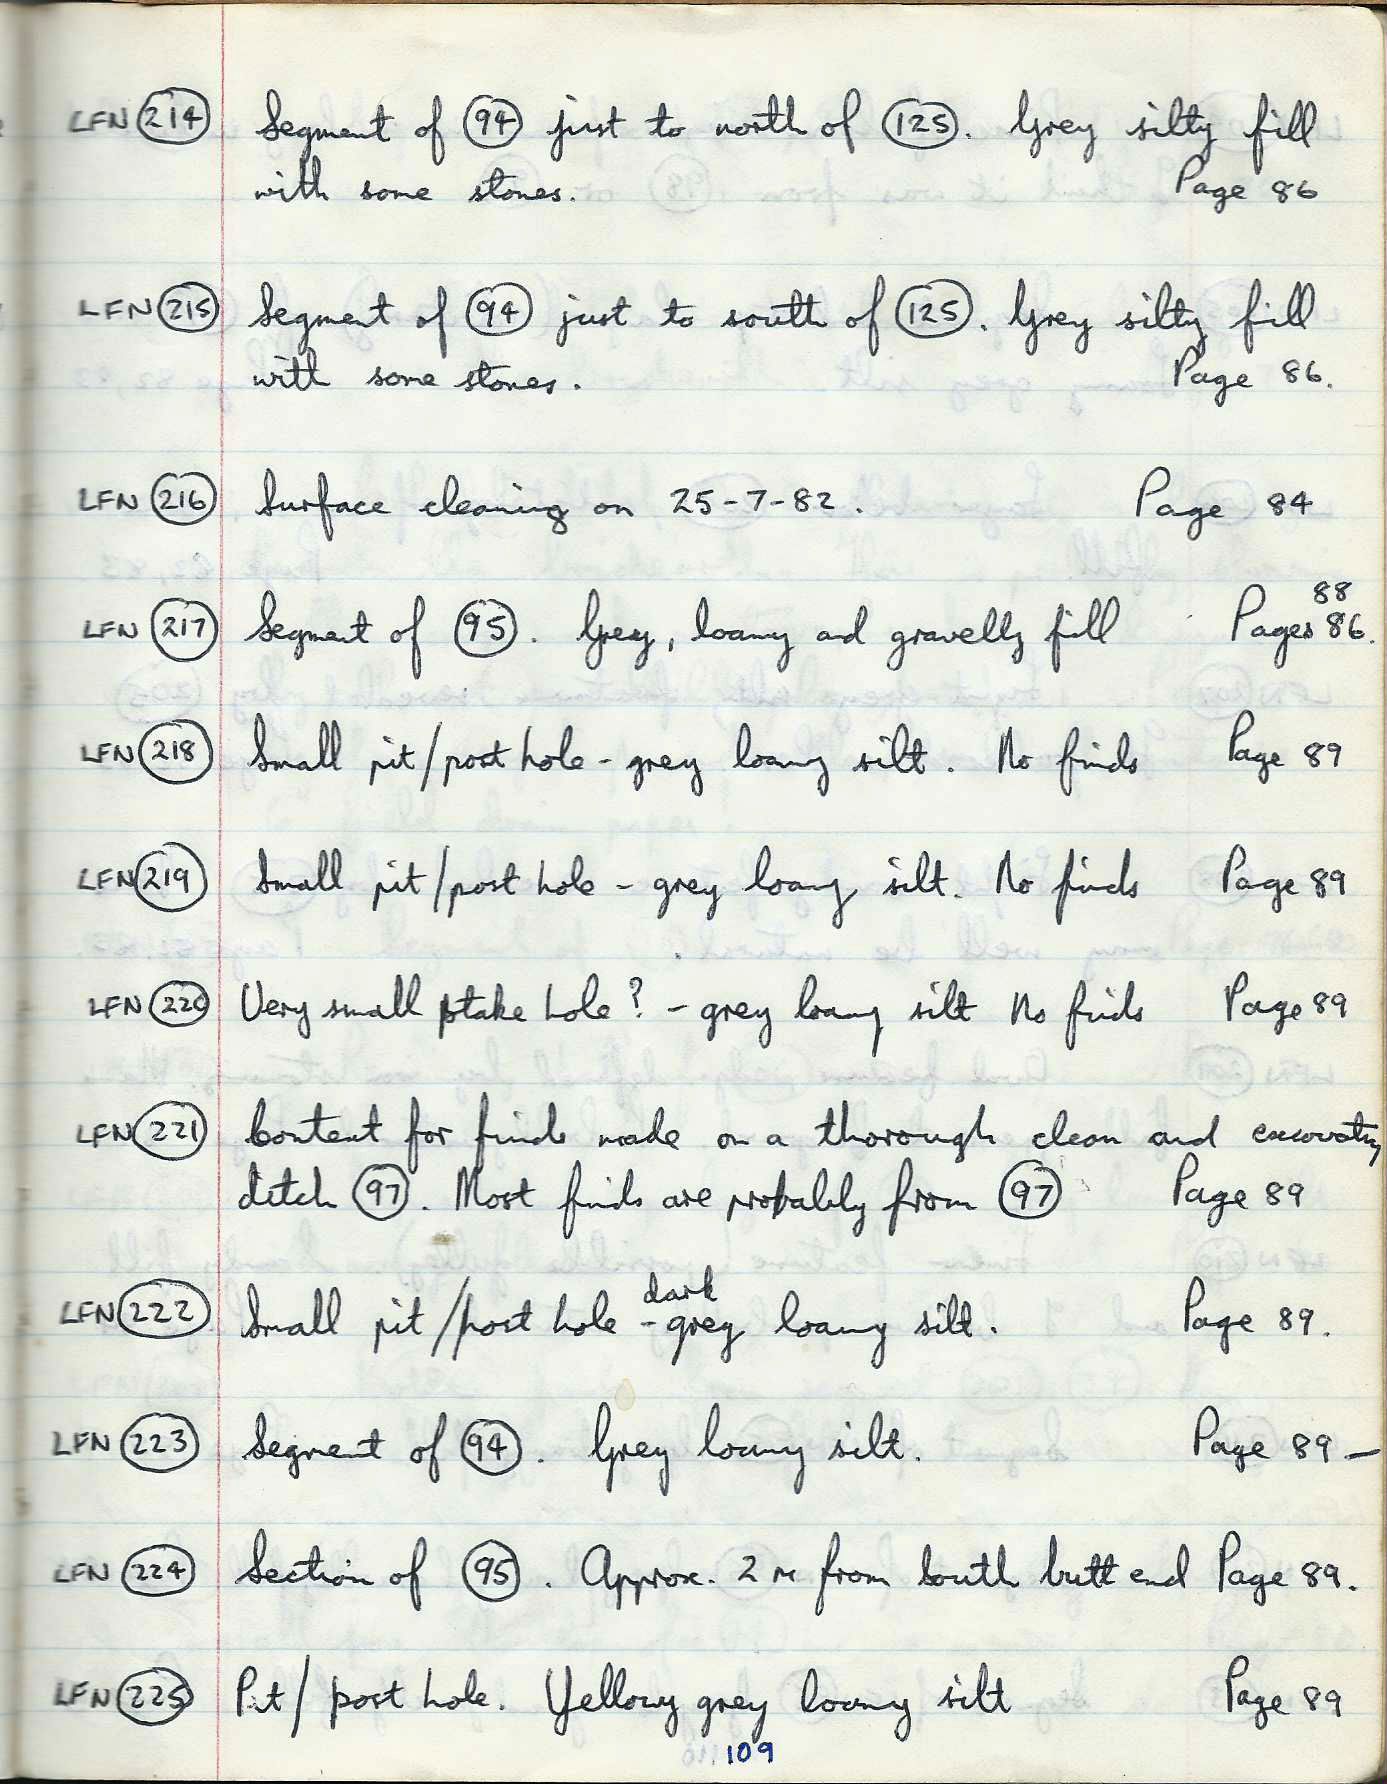 LFN 214 Segment of 94 just to north of 125. Grey silty fill
with some stones. Page 86
LFN 215 Segment of 94 just to south of 125. Grey silty fill
with some stones. Page 86.
LFN 216 Surface cleaning on 25-7-82. Page 84
88
LFN 217 Segment of 95. Grey, loamy and gravelly fill Pages 86.
LFN 218 Small pit/post hole - grey loamy silt. No finds Page 89
LFN 219 Small pit/post hole - grey loamy silt. No finds Page 89
LFN 220 Very small stake hole? - grey loamy silt No finds Page 89
LFN 221 Context for finds made on a thorough clean and excavating
ditch 97. Most finds are probably from 97 Page 89
dark
LFN 222 Small pit/post hole - grey loamy silt. Page 89.
LFN 223 Segment of 94. Grey loamy silt. Page 89 -
LFN 224 Section of 95. Approx. 2 m from South butt end Page 89.
LFN 225 Pit/post hole. Yellowy grey loamy silt Page 89
109